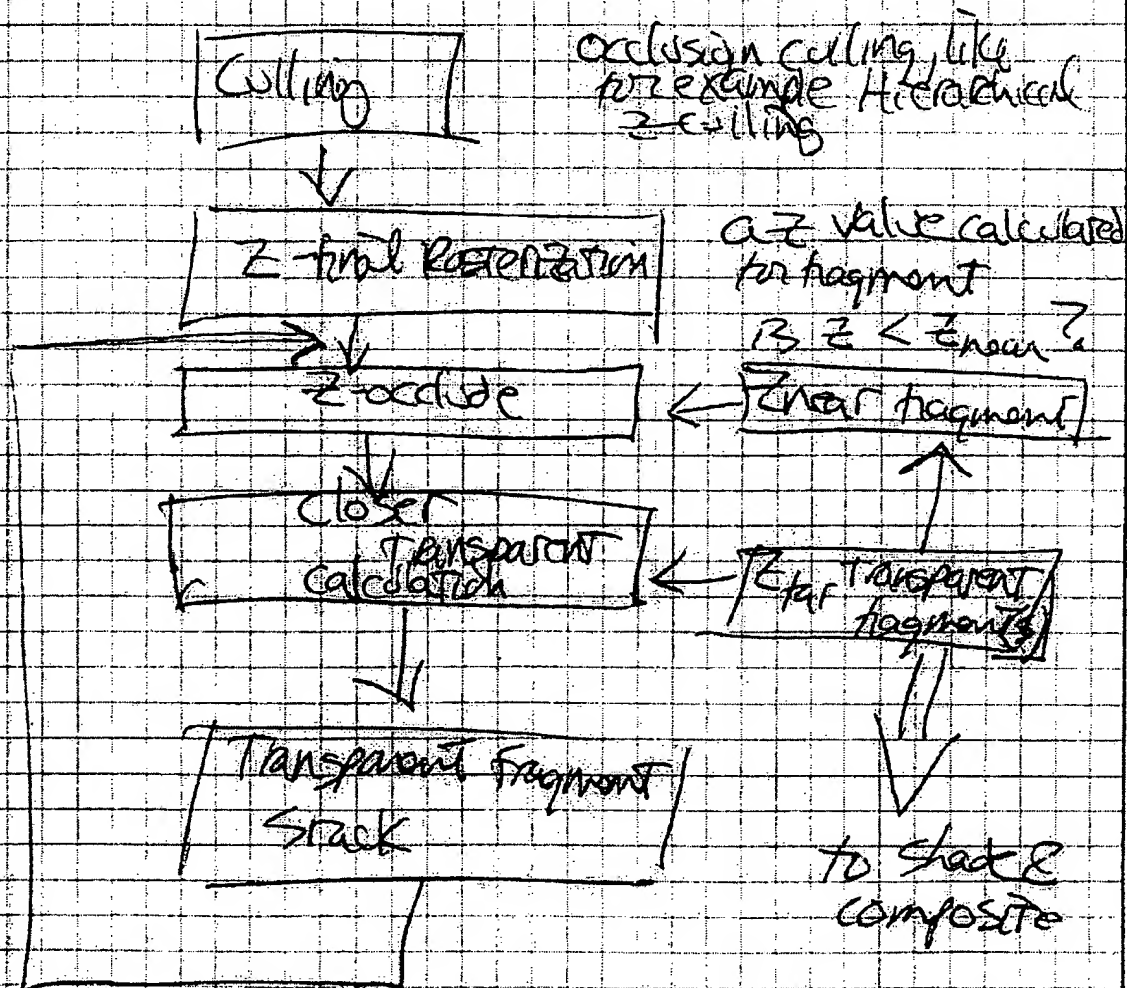 Culling
occlusion culling, like
for example Hierarchical
z-culling
Z-final Rasterization
a z value calculated
for fragment
is z < znear?
z-occlude
Znear fragment
Closer
Transparent
calculation
Zfar Transparent
fragment(s)
Transparent Fragment
Stack
to shade &
composite